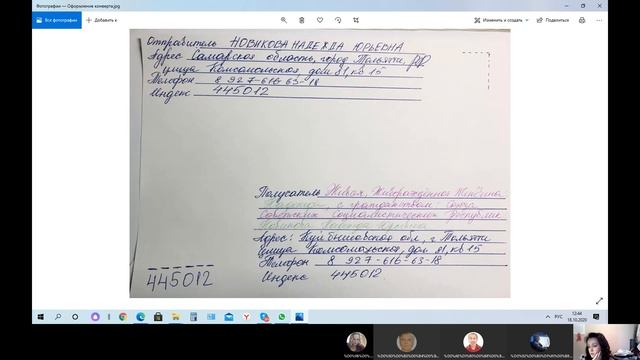 Фотографии — Оформление конверта.jpg
Все фотографии
Добавить к
Изменить и создать
Отправитель НОВИКОВА НАДЕЖДА ЮРЬЕВНА
Адрес Самарская область, город Тольятти, РФ
улица Комсомольская, дом 81, кв 15
Телефон 8 927-616-63-18
Индекс 445012
Получатель Живая, Живорождённая Женщина
Надежда, с гражданством: Союза
Советских Социалистических Республик
Новикова Надежда Юрьевна
Адрес: Куйбышевская обл, г. Тольятти
улица Комсомольская, дом 81, кв 15
Телефон 8 927-616-63-18
445012
Индекс 445012
РУС
12:44
18.10.2020